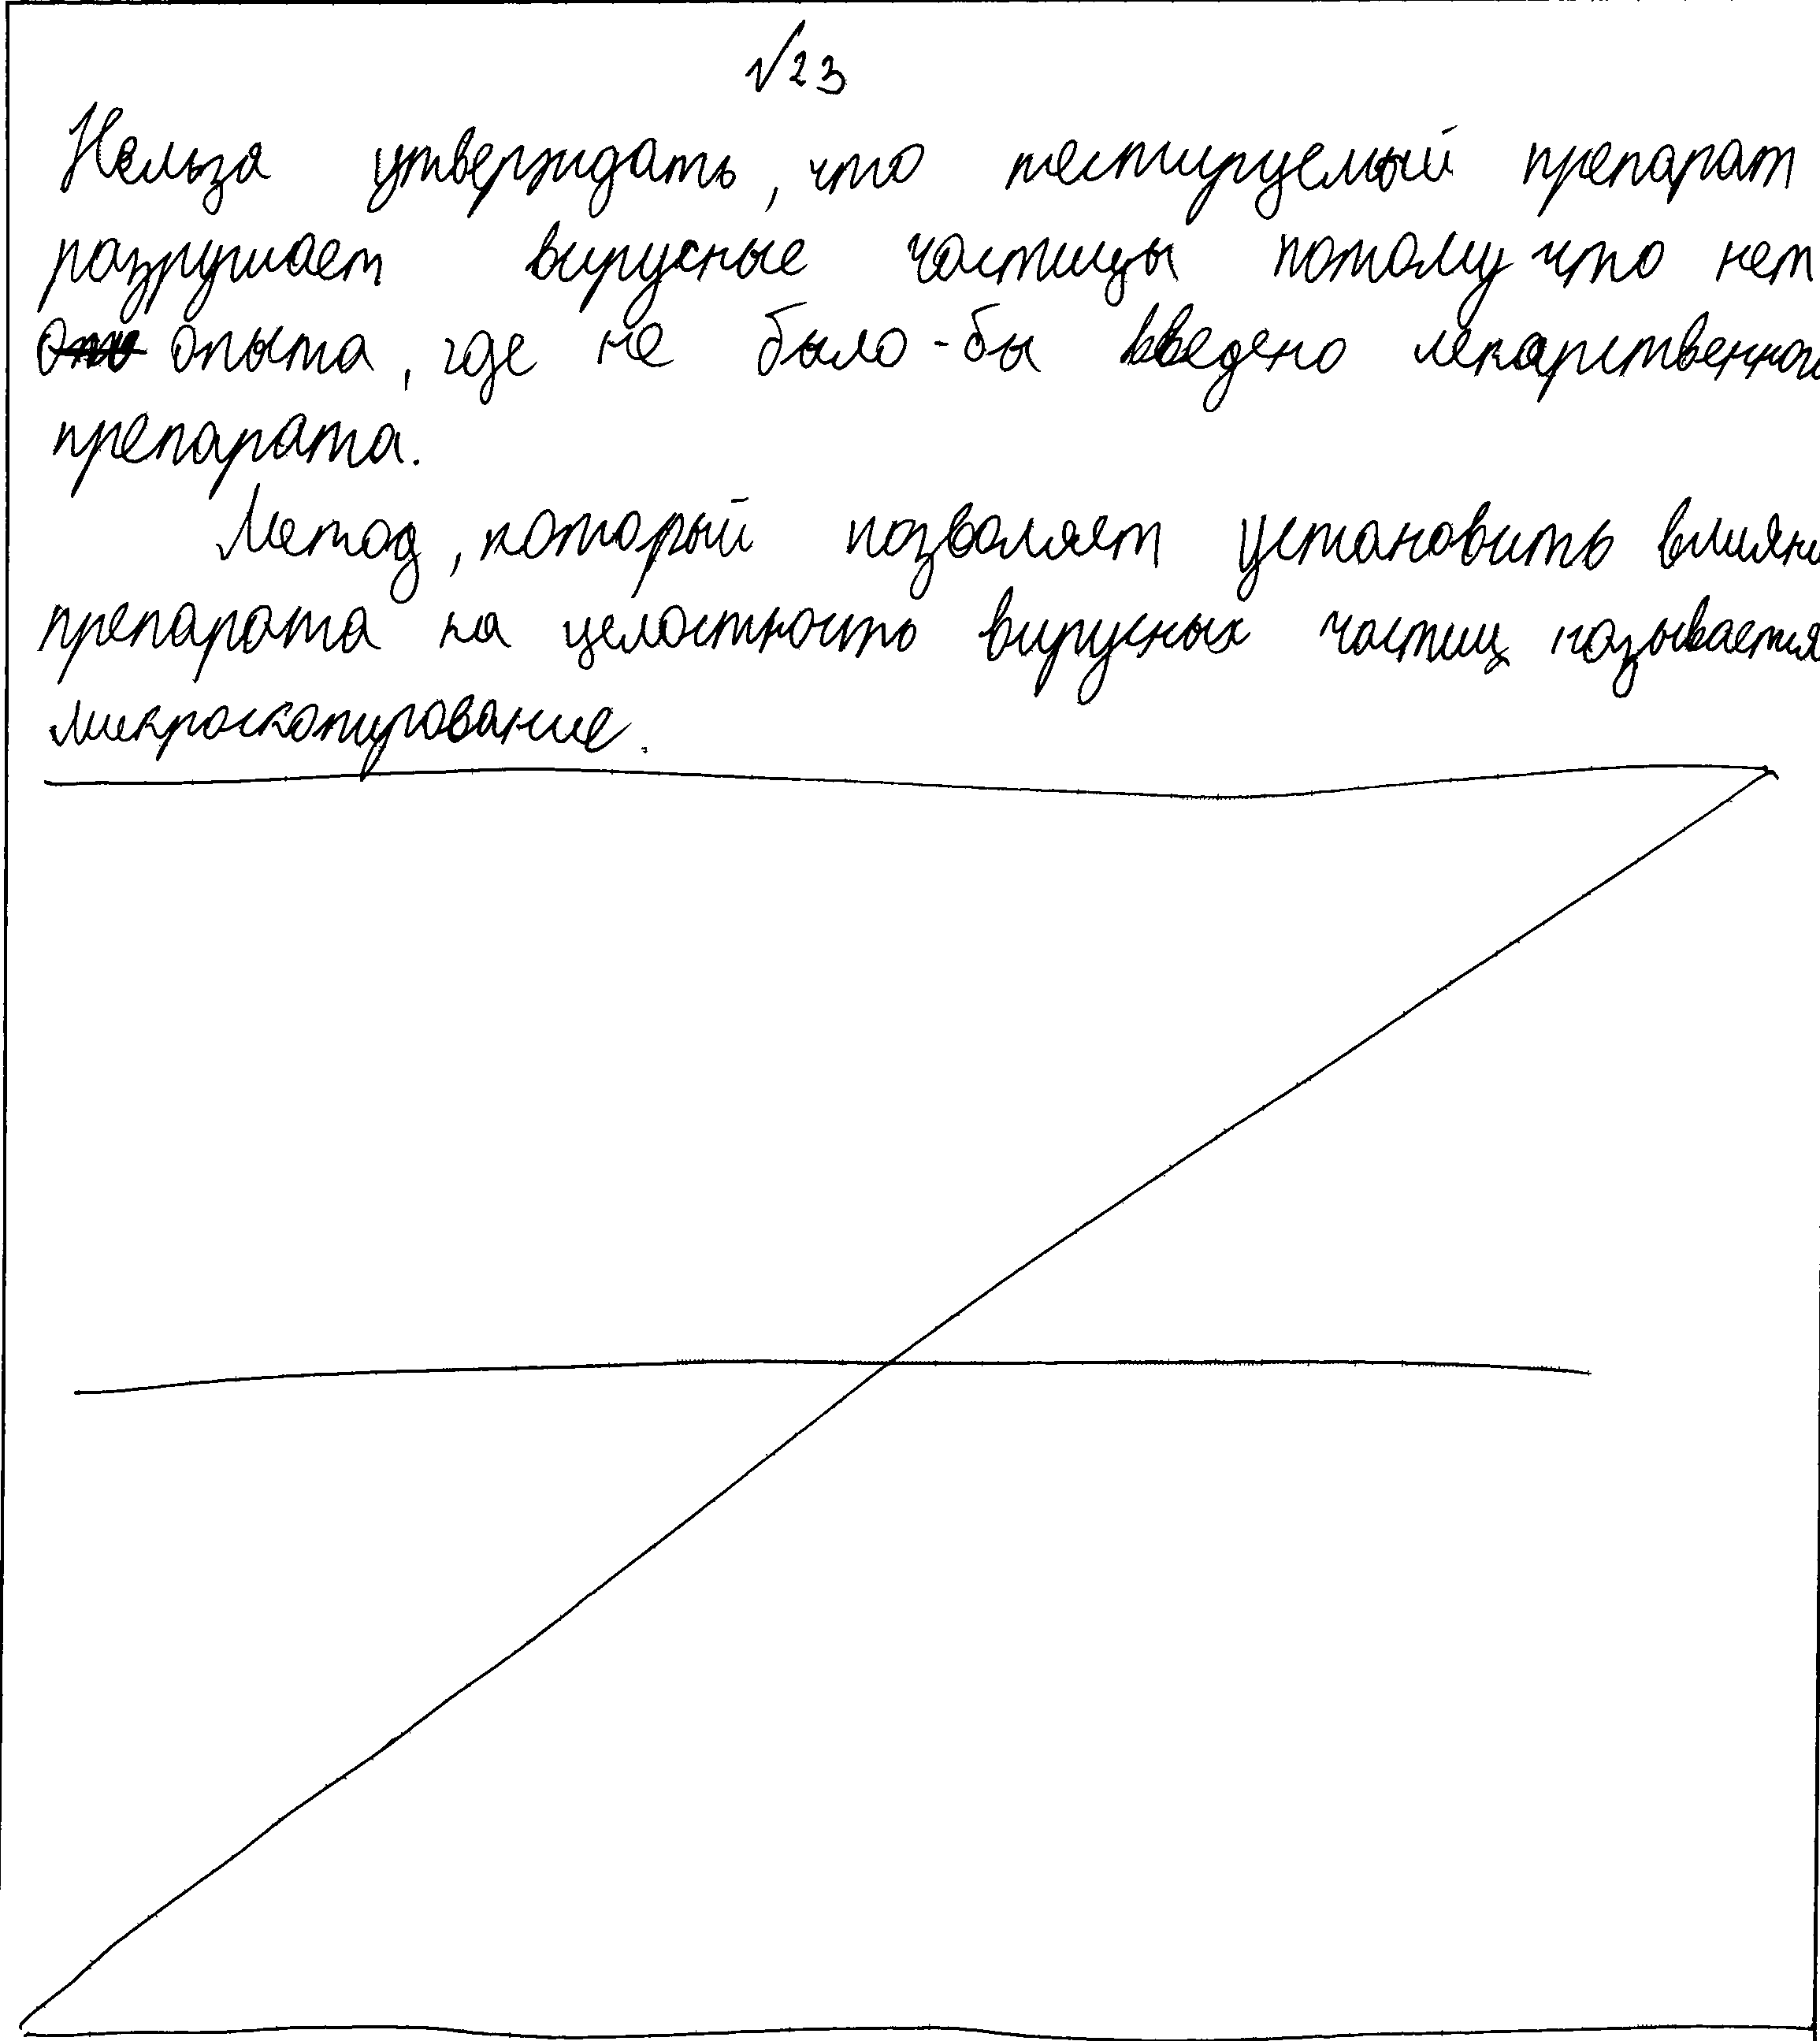 √23
Нельзя утверждать, что тестируемый препарат
разрушает вирусные частицы потому что нет
опыта, где не было-бы введено лекарственного
препарата.
Метод, который позволяет установить влияни
препарата на целостность вирусных частиц называется
микроскопирование.